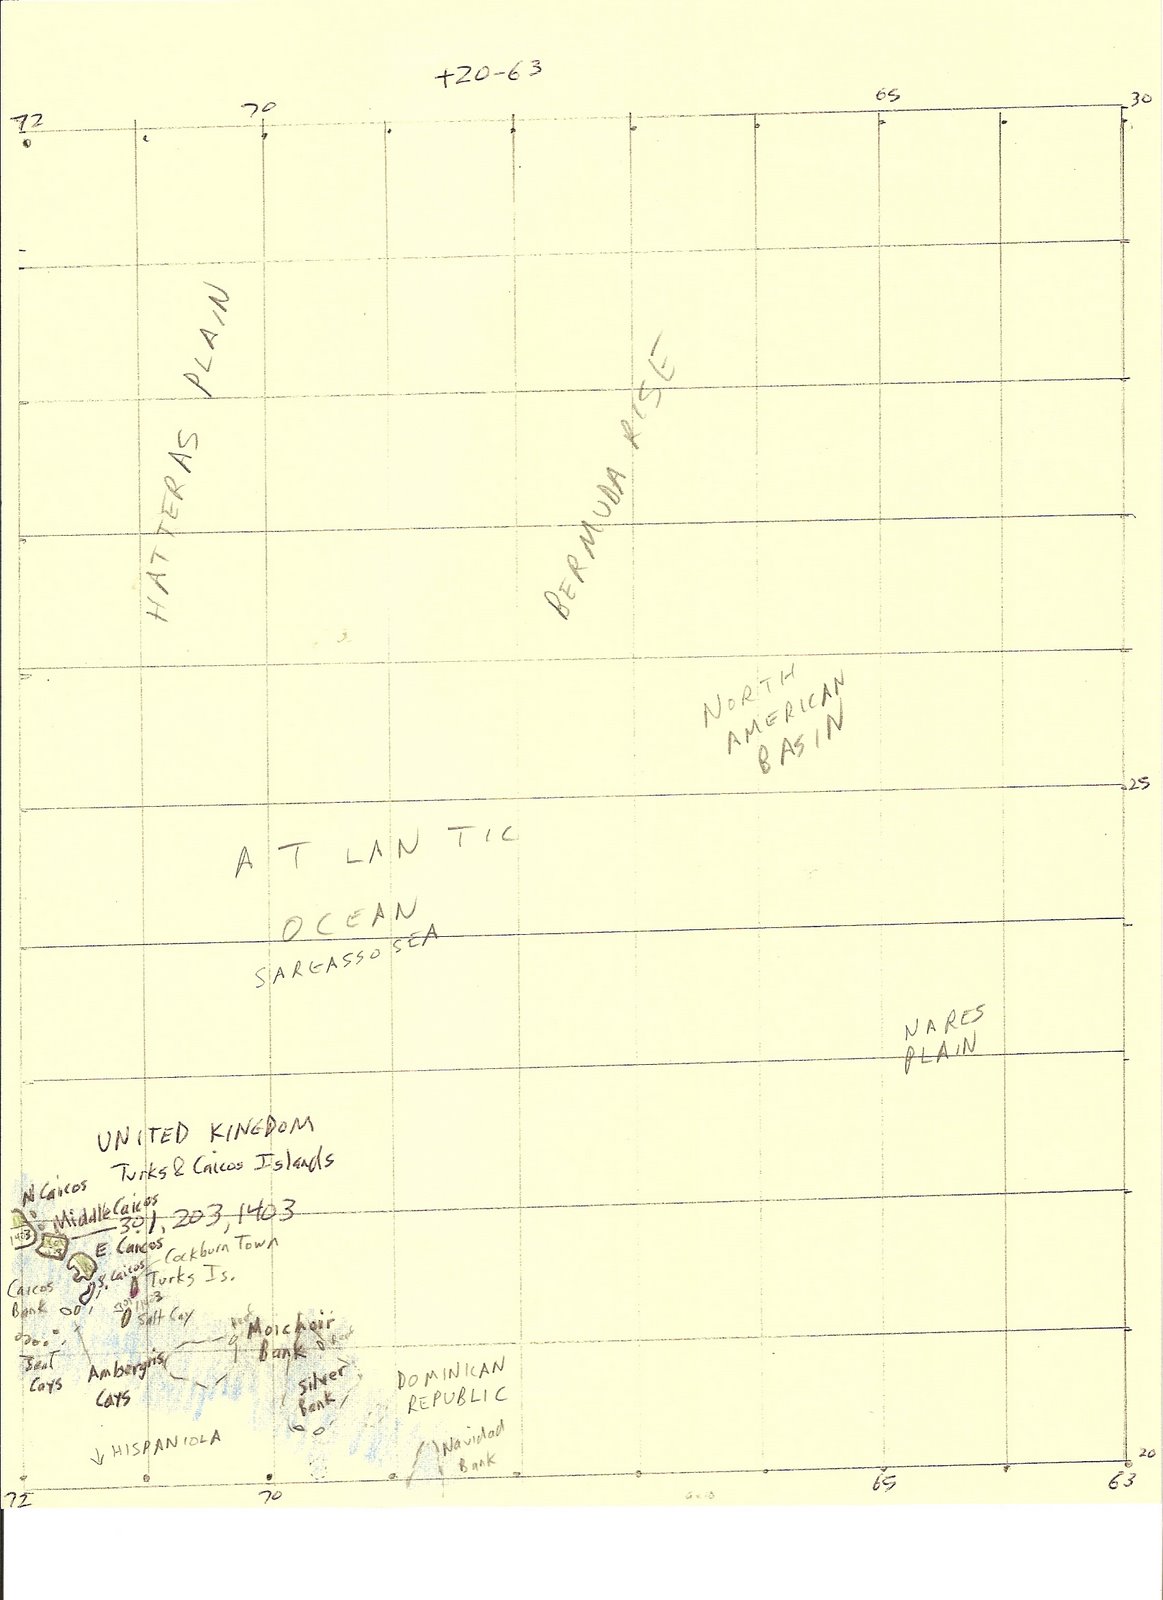 +20-63
72
70
65
30
HATTERAS PLAIN
BERMUDA RISE
NORTH
AMERICAN
BASIN
25
ATLANTIC
OCEAN
SARGASSO SEA
NARES
PLAIN
UNITED KINGDOM
Turks & Caicos Islands
N Caicos
Middle Caicos
301, 203, 1403
1403
E. Caicos
S. Caicos
Cockburn Town
Turks Is.
Caicos
Bank
Salt Cay
Seal
Cays
Ambergris
Cays
Reef
Moichoir
Bank
Reef
Silver
Bank
DOMINICAN
REPUBLIC
↓ HISPANIOLA
Navidad
Bank
20
72
70
65
63